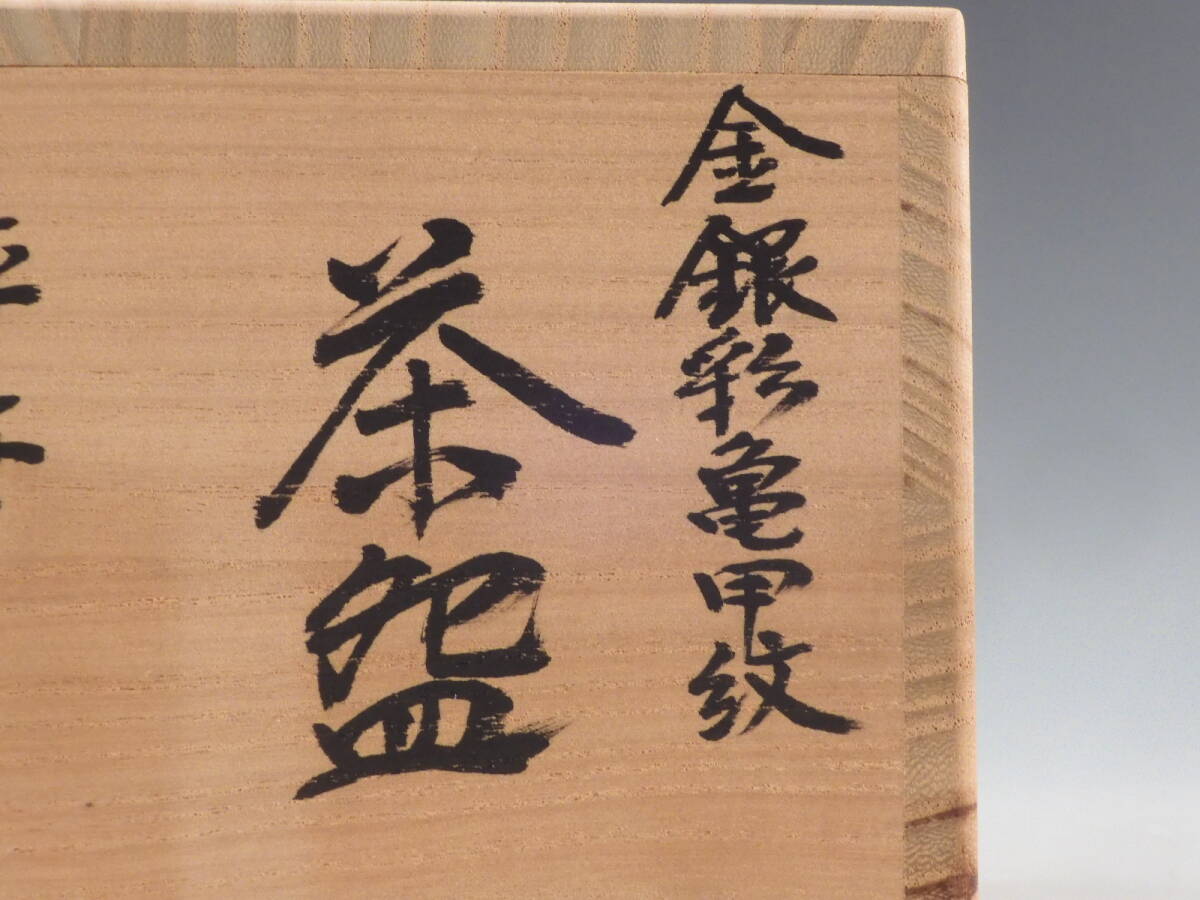 金銀彩亀甲紋
茶盌